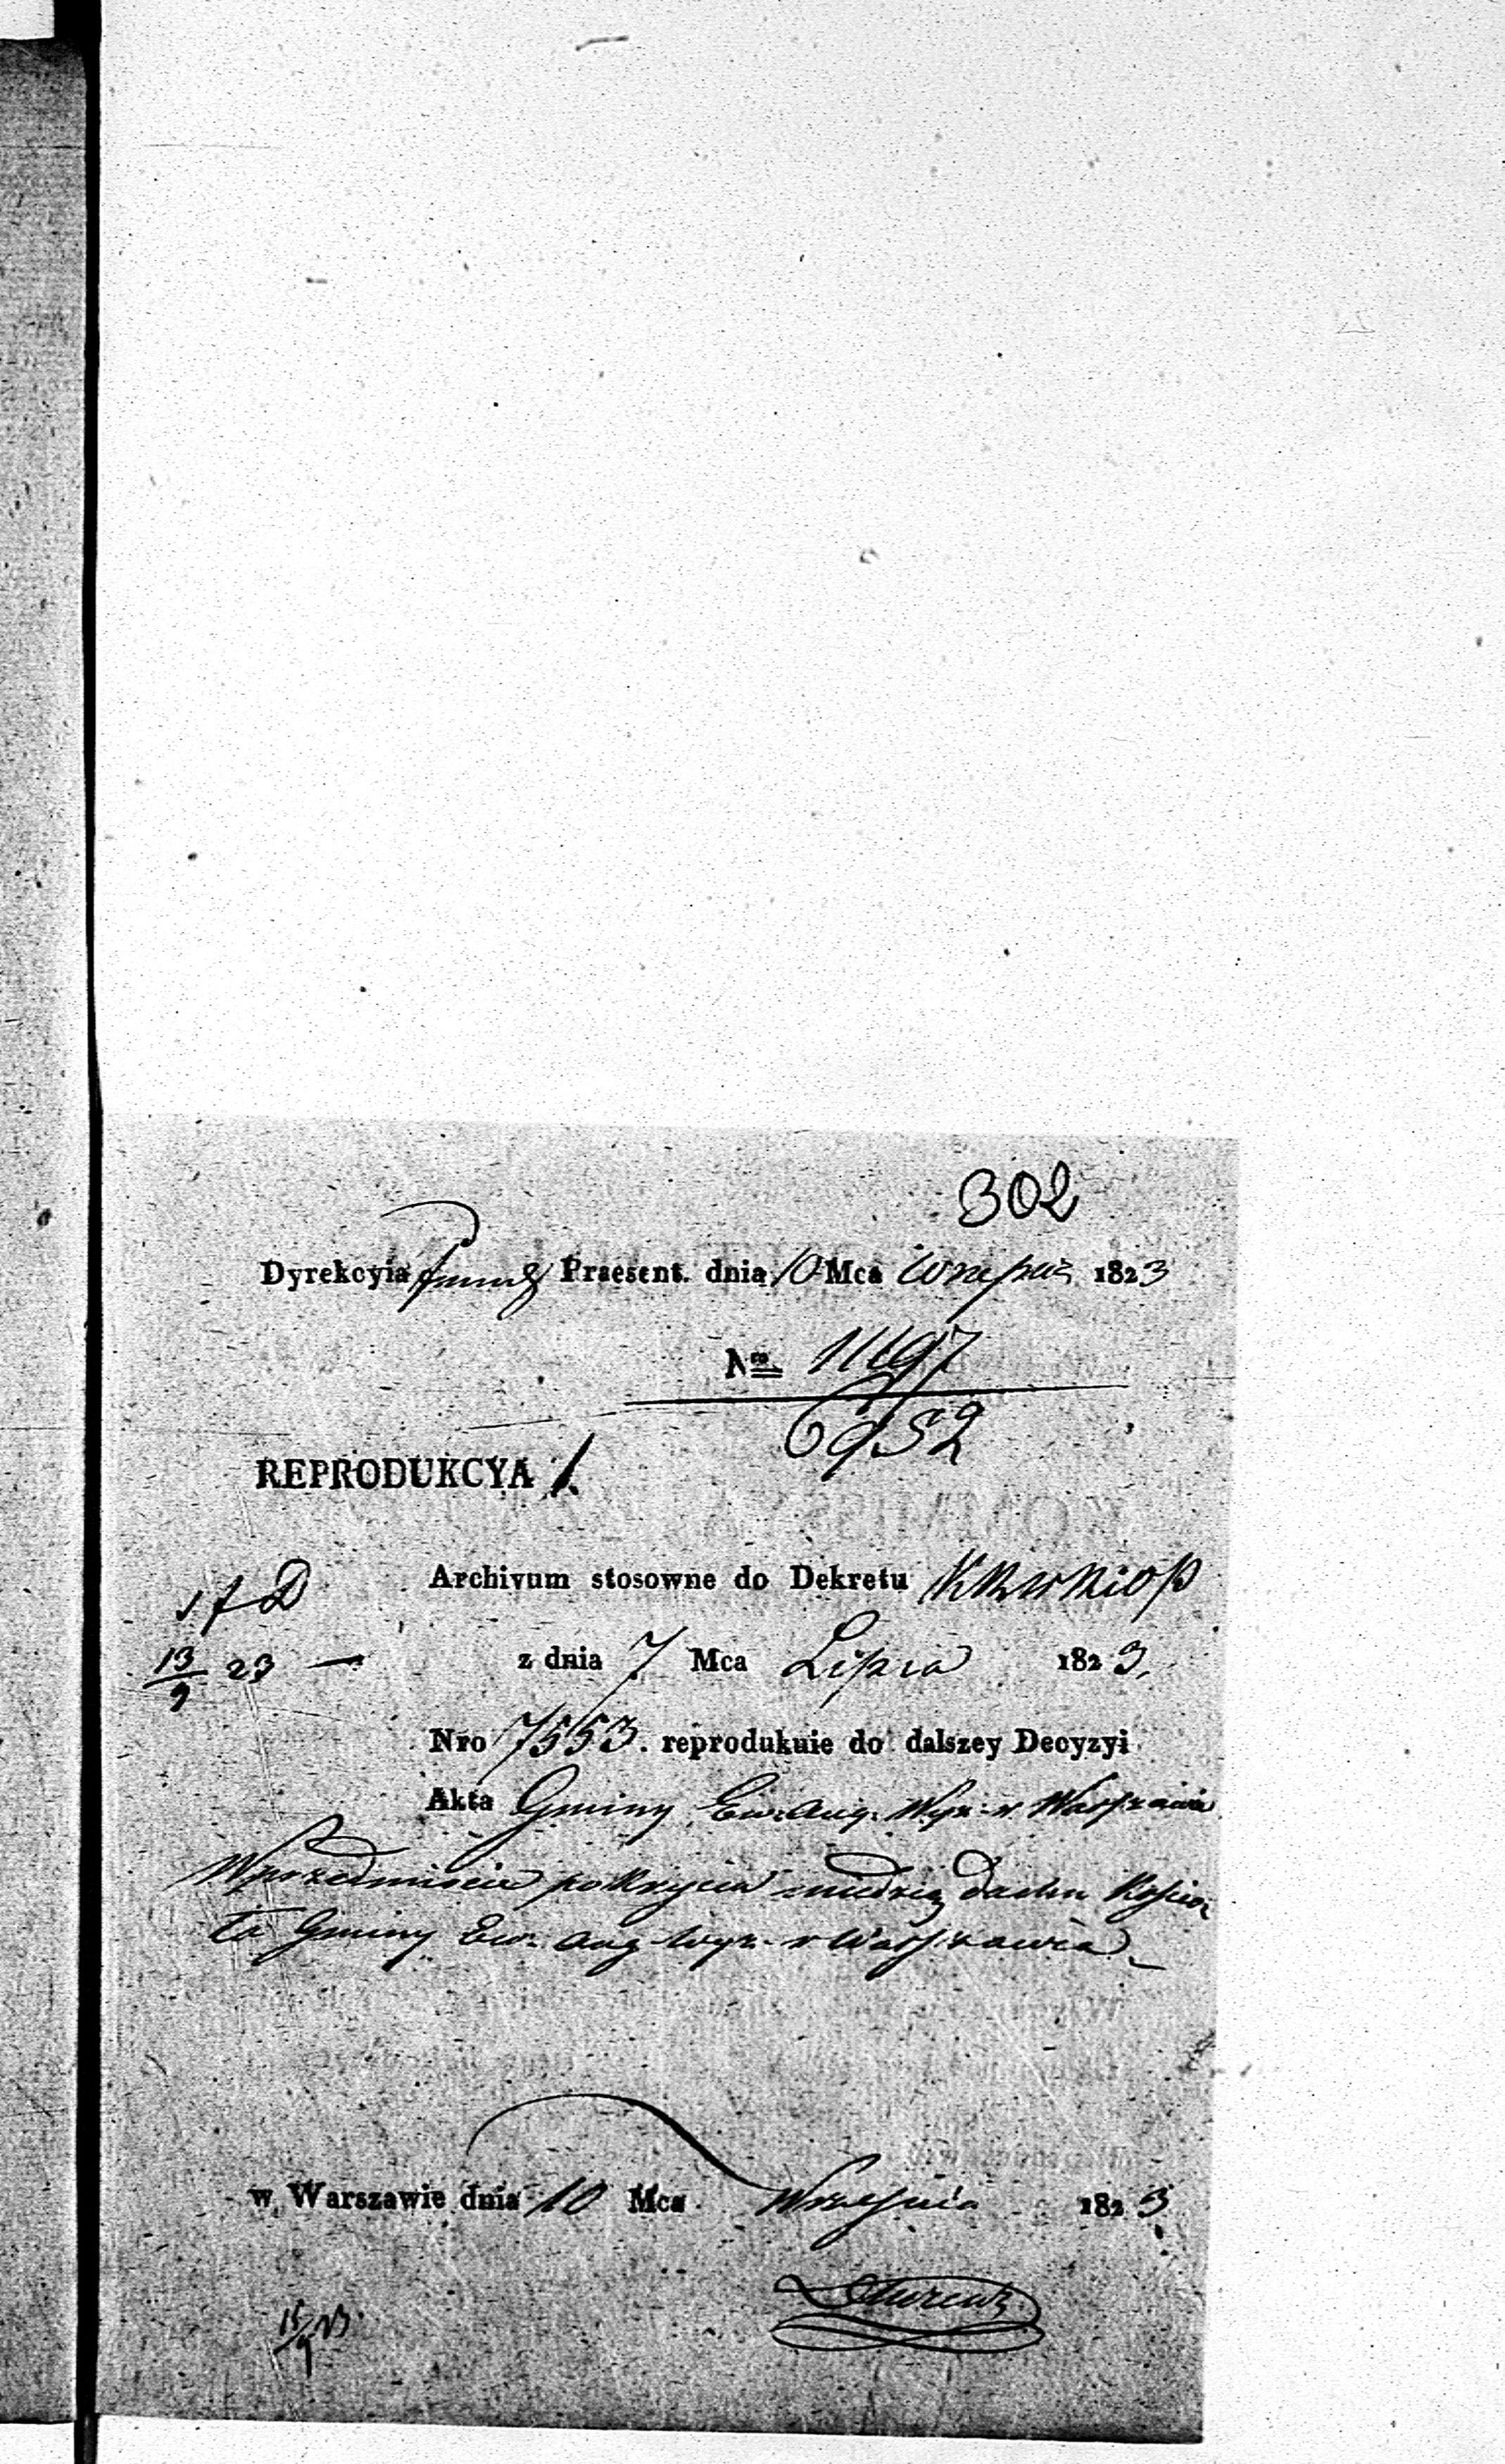 302
Dyrekcyia Praesent. dnia 10 Mca Września 1823
Nro 11197
6952
REPRODUKCYA 1.
Archivum stosowne do Dekretu
z dnia 7 Mca Lipca 1823.
13/9 23 —
Nro 7553. reprodukuie do dalszey Decyzyi
Akta Gminy Ew: Aug: Wyz: w Warszawie
W przedmiocie pokrycia miedzią dachu Kościo
ła Gminy Ew: Aug Wyz: w Warszawie
w Warszawie dnia 10 Mca Września 1823
15/9 23